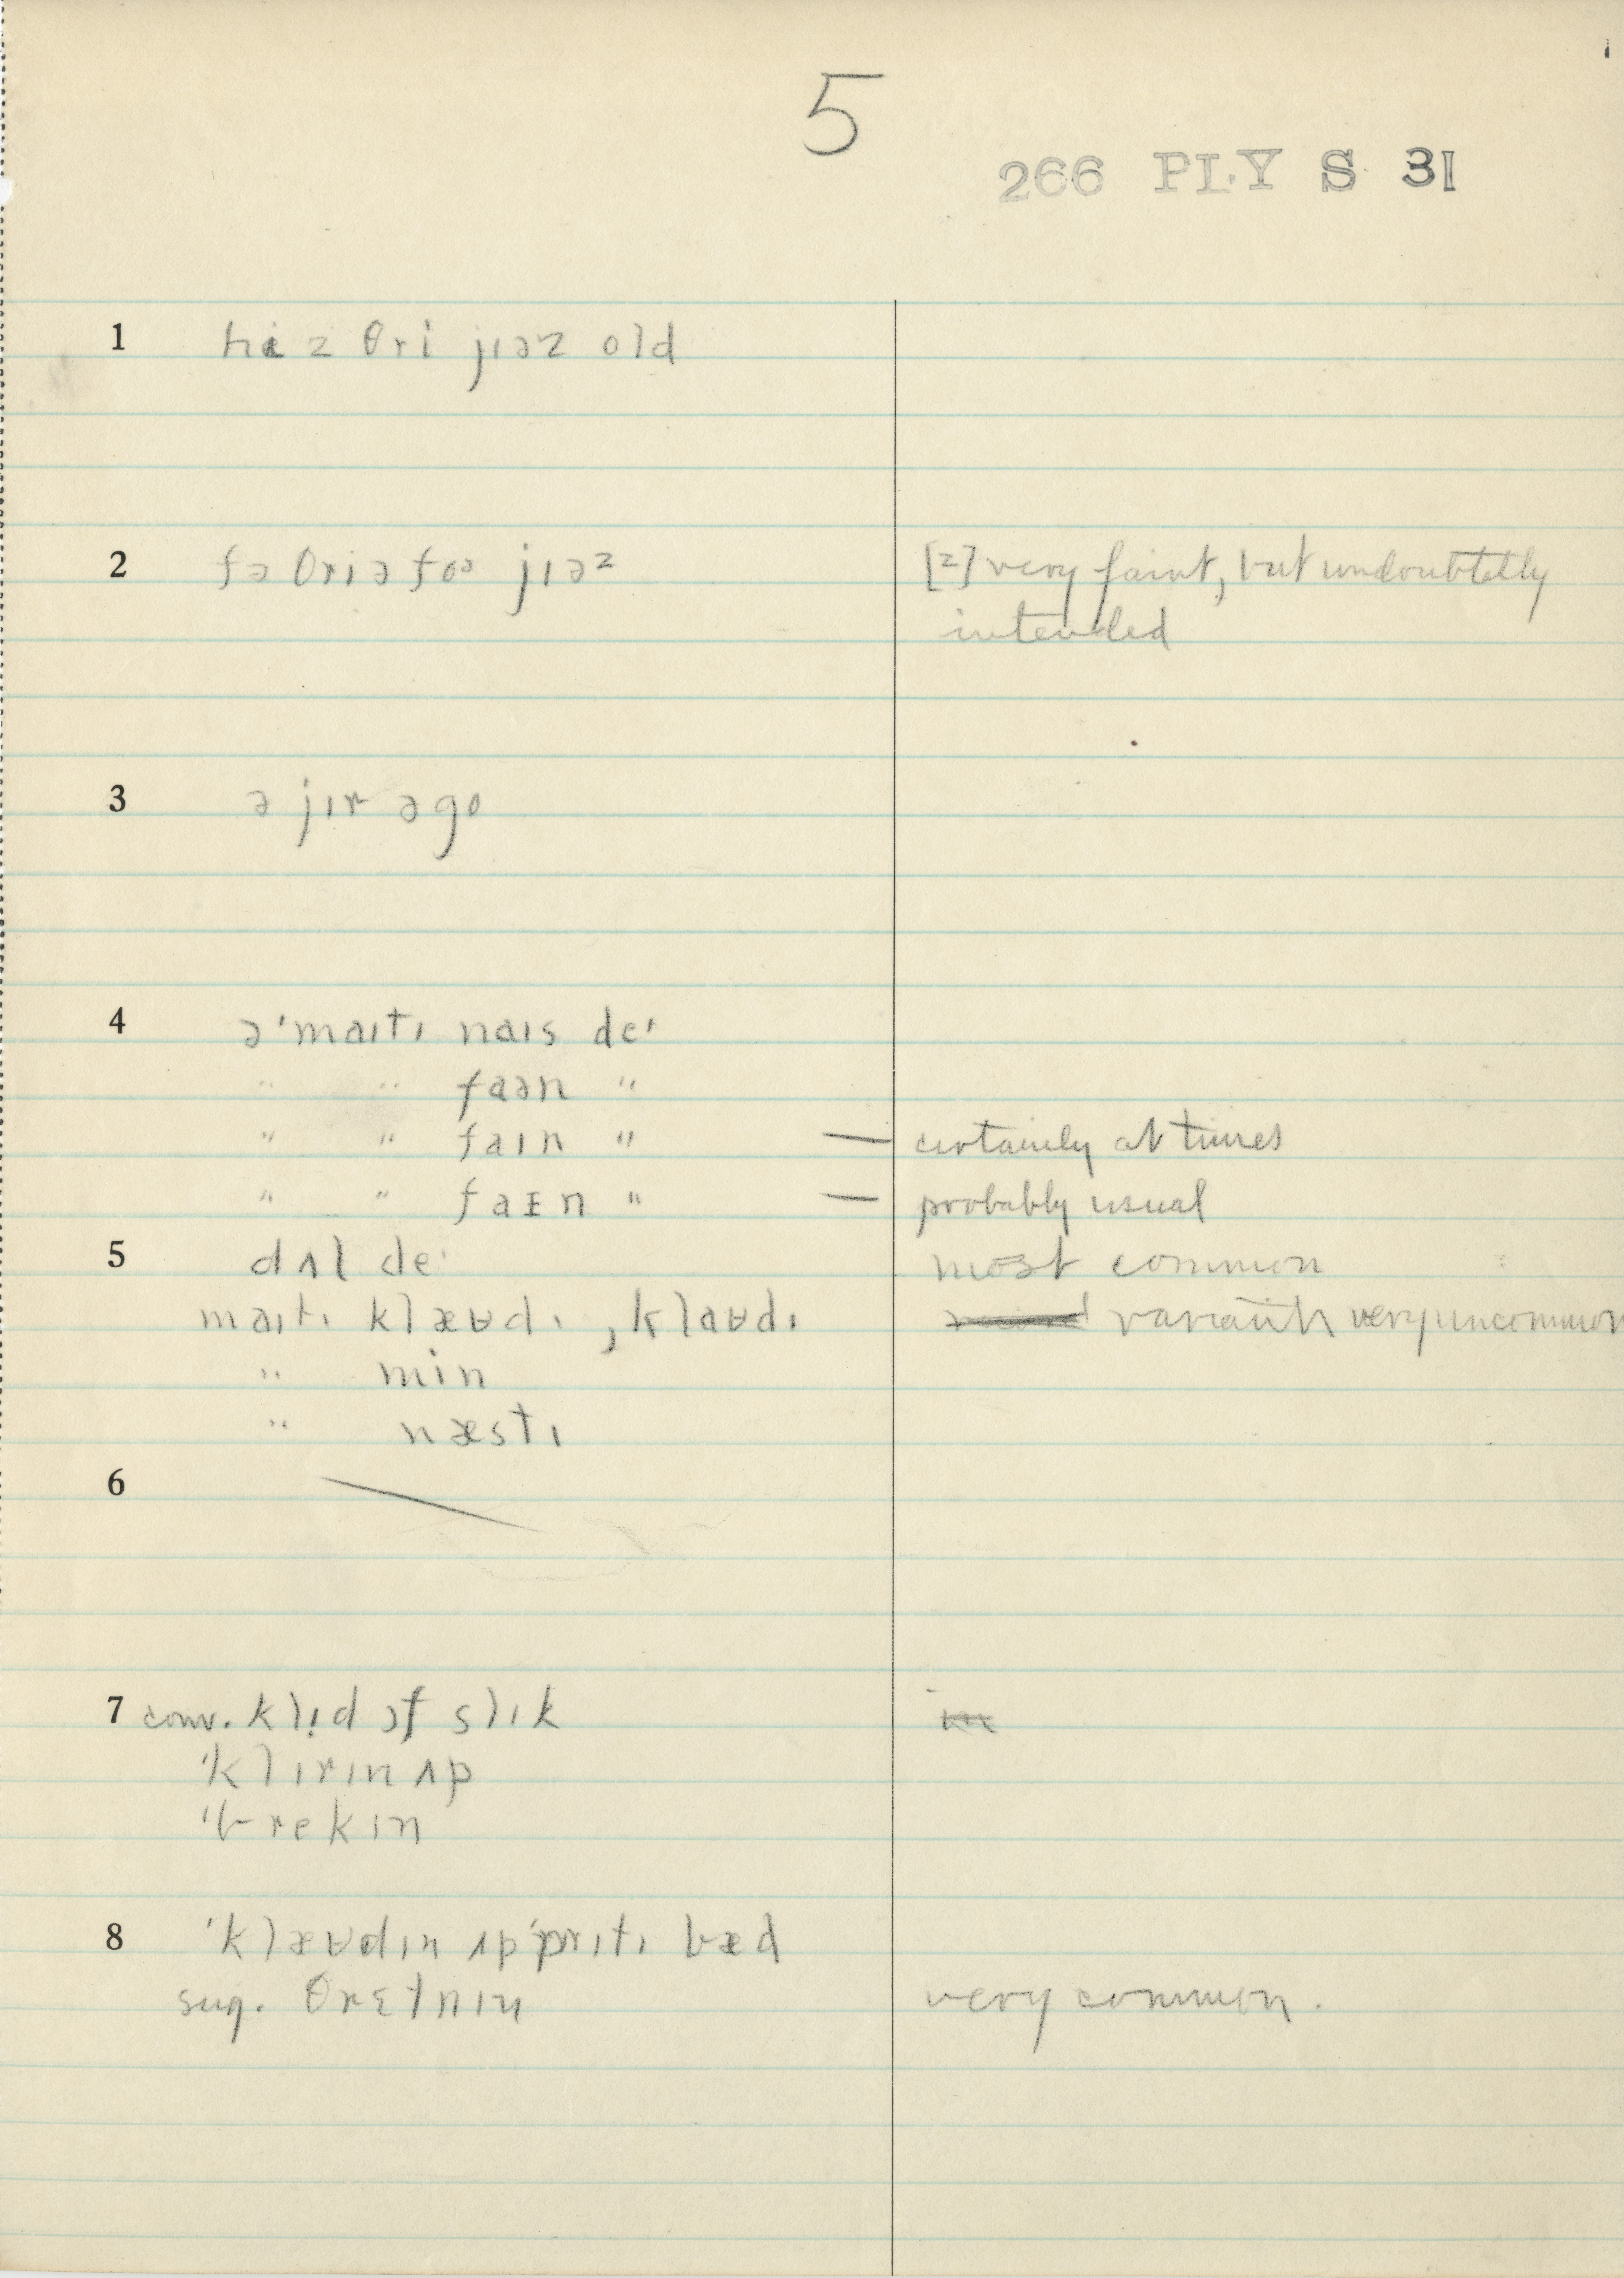 5
266 PLY S 31
1 hi z θri jıəz old
2 fə θri ə foə jıəᶻ [ᶻ] very faint, but undoubtedly
intended
3 ə jır əgo
4 ə ˈmaıtı naıs deˈ
" " faən "
" " faın " — certainly at times
" " faɪn " — probably usual
5 dʌl deˈ most common
maıtı klæʊdı, klaʊdı variants very uncommon
" min
" næstı
6
7 conv. klı̣d ɔf slık
ˈklırın ʌp
ˈbrekın
8 ˈklæʊdın ʌp ˈprıtı bæd
sug. θrɛtnın very common.